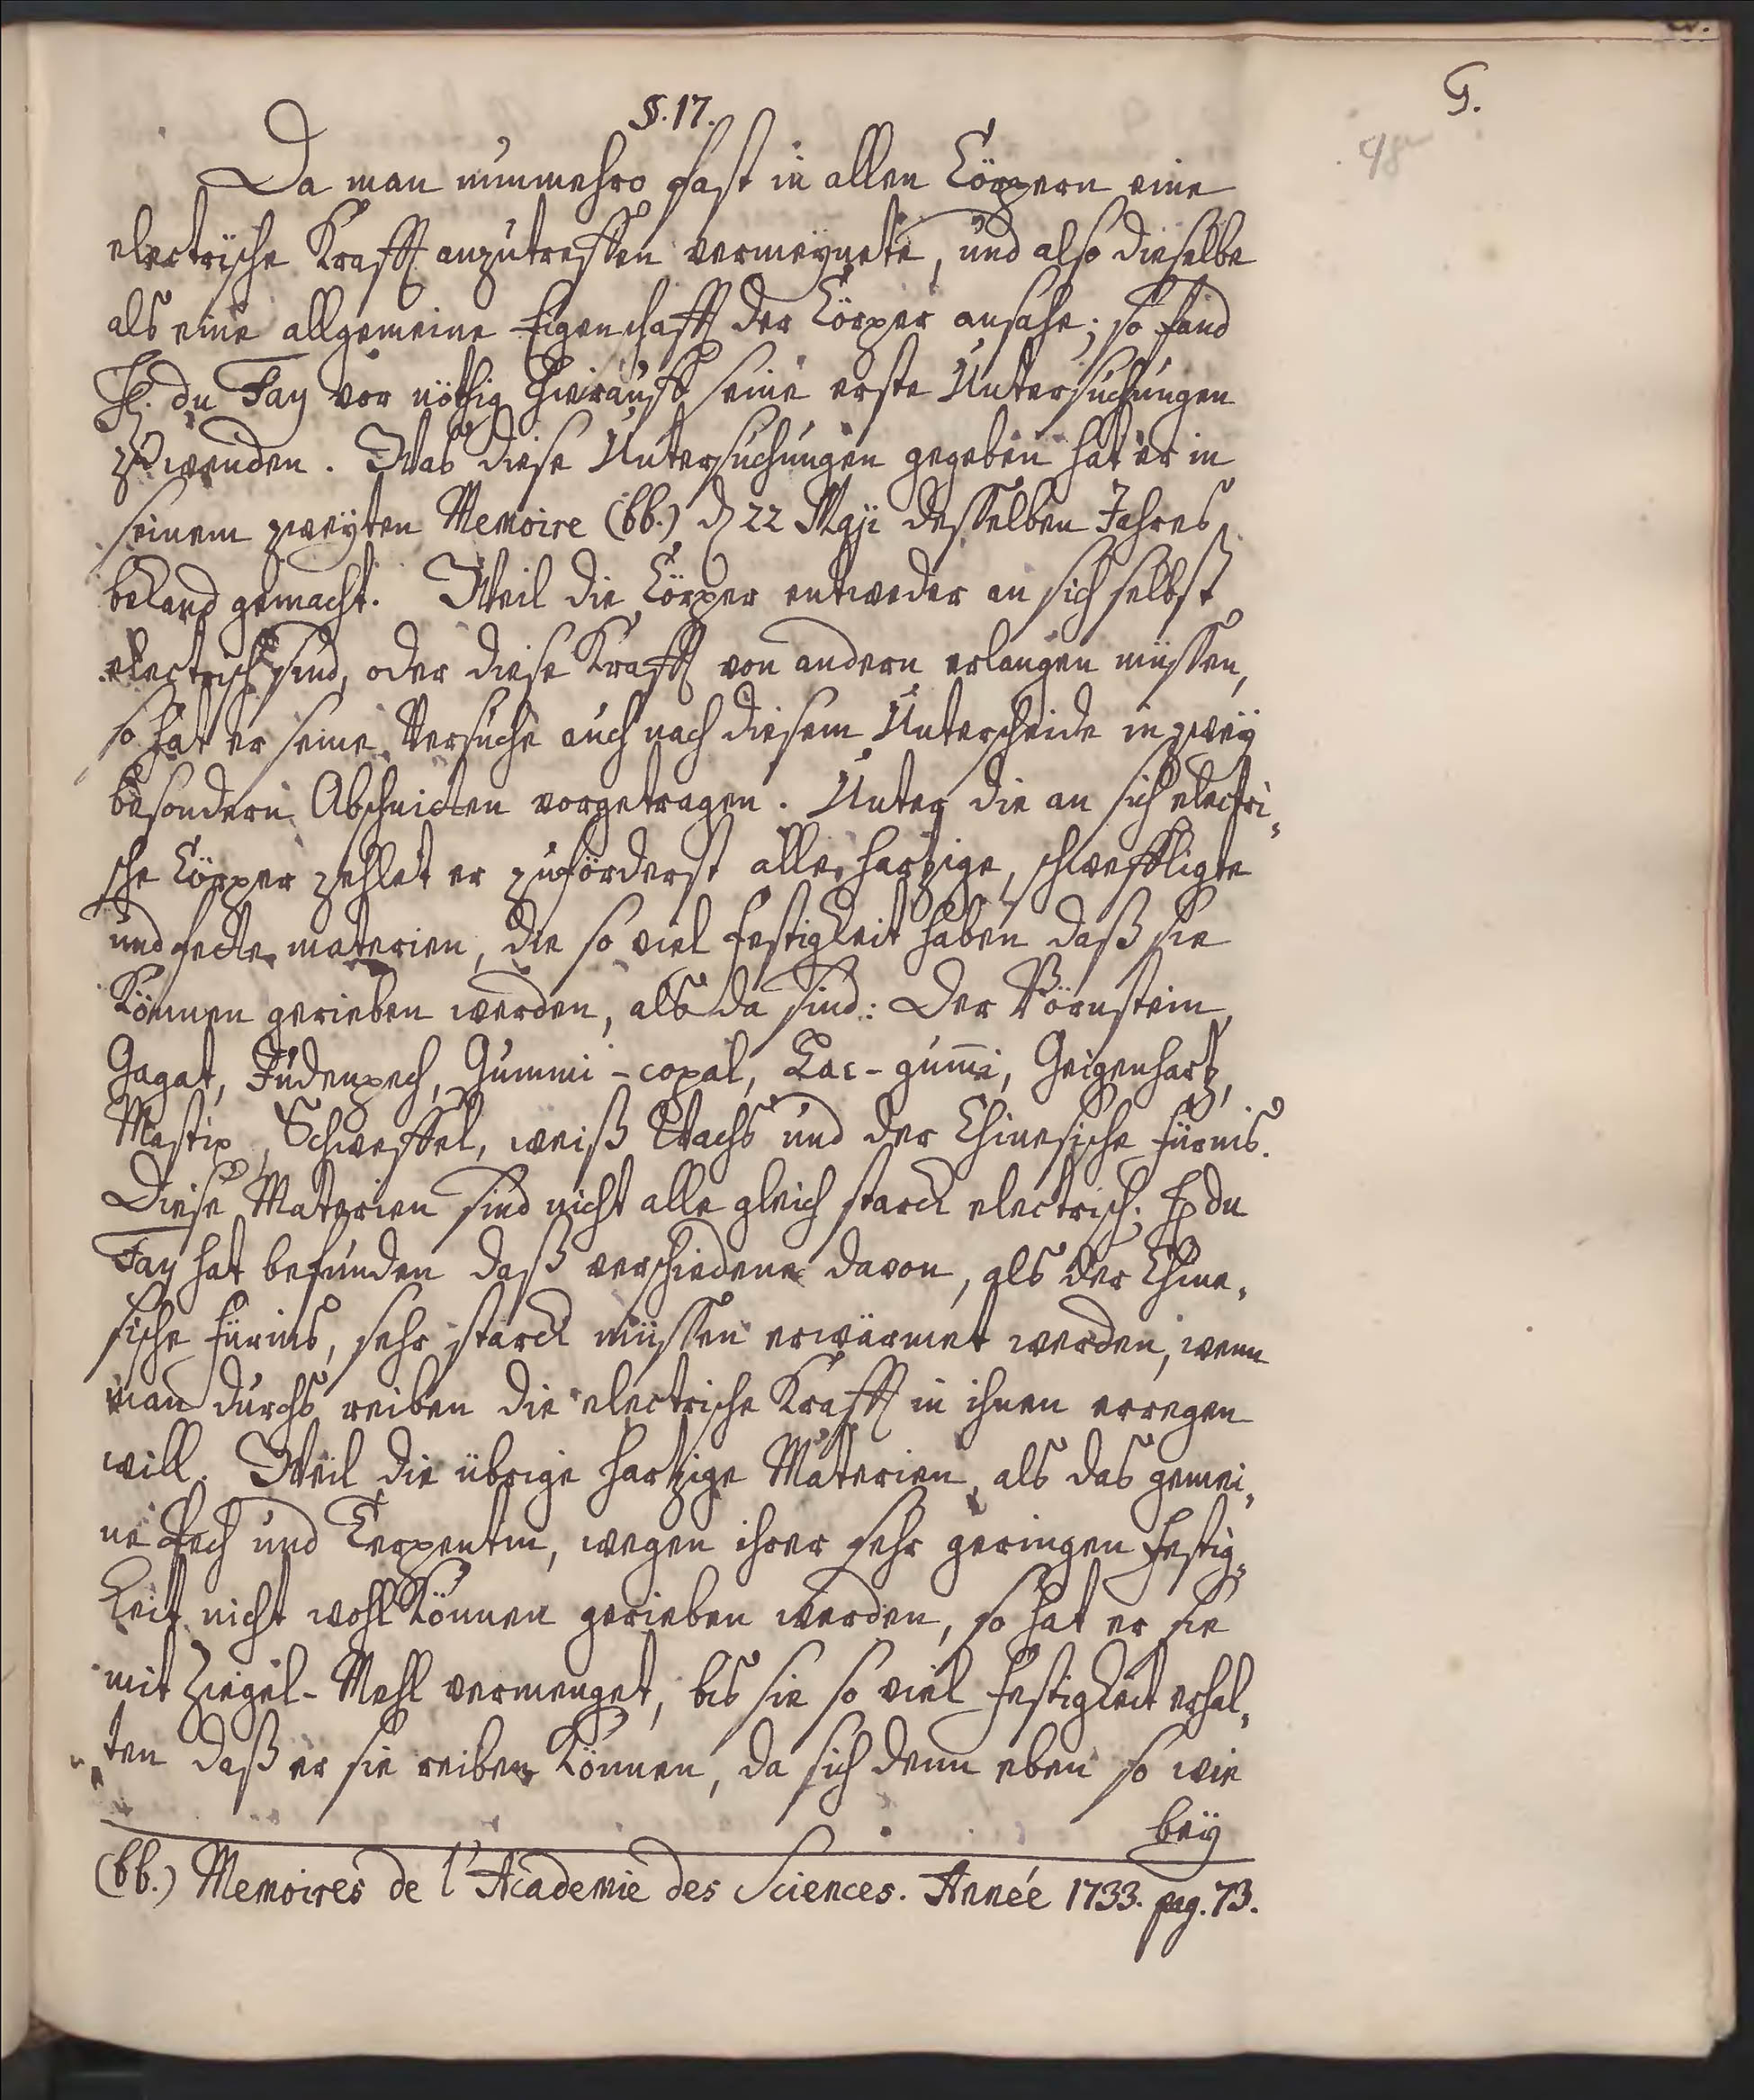 G.
§. 17.
Da man nunmehro fast in allen Cörpern eine
electrische Krafft anzutreffen vermeynete, und also dieselbe
als eine allgemeine Eigenschafft der Cörper ansahe; so fand
H. du Fay vor nöthig hierauf seine erste Untersuchungen
zu wenden. Was diese Untersuchungen gegeben hat er in
seinem zweyten Memoire (bb.) d 22 Maji desselben Jahres
bekand gemacht. Weil die Cörper entweder an sich selbst
electrisch sind, oder diese Krafft von andern erlangen müssen,
so hat er seine Versuche auch nach diesem Unterscheide in zwey
besondern Abschnitten vorgetragen. Unter die an sich electri-
sche Cörper zehlet er zuförderst alle hartzige, schwefligte
und fette materien, die so viel Festigkeit haben daß sie
können gerieben werden, als da sind: der Börnstein,
Gagat, Judenpech, Gummi-copal, Lac-gum̄i, Geigenhartz,
Mastix, Schweffel, weiß Wachs und der Chinesische Fürnis.
Diese Materien sind nicht alle gleich starck electrisch; H du
Fay hat befunden daß verschiedene davon, als der Chine-
sische Fürnis, sehr starck müssen erwärmet werden, wenn
man durchs reiben die electrische Krafft in ihnen erregen
will. Weil die übrige hartzige Materien, als das gemei-
ne Pech und Terpentin, wegen ihrer sehr geringen Festig-
keit nicht wohl können gerieben werden, so hat er sie
mit Ziegel-Mehl vermenget, bis sie so viel Festigkeit erhal-
ten daß er sie reiben können, da sich denn eben so wie
bey
(bb.) Memoires de l'Academie des Sciences. Année 1733. pag. 73.